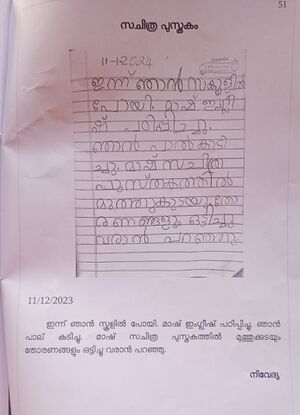 51
സചിത്ര പുസ്തകം
11-1-2024
ഇന്ന് ഞാൻ സ്കൂളിൽ
പോയി. മാഷ് ഇംഗ്ലീ
ഷ് പഠിപ്പിച്ചു.
ഞാൻ പാൽ കുടി
ച്ചു. മാഷ് സചിത്ര
പുസ്തകത്തിൽ
മുത്തുക്കുടയും തോ
രണങ്ങളും ഒട്ടിച്ചു
വരാൻ പറഞ്ഞു.
11/12/2023
ഇന്ന് ഞാൻ സ്കൂളിൽ പോയി. മാഷ് ഇംഗ്ലീഷ് പഠിപ്പിച്ചു. ഞാൻ
പാല് കുടിച്ചു. മാഷ് സചിത്ര പുസ്തകത്തിൽ മുത്തുക്കുടയും
തോരണങ്ങളും ഒട്ടിച്ചു വരാൻ പറഞ്ഞു.
നിവേദ്യ